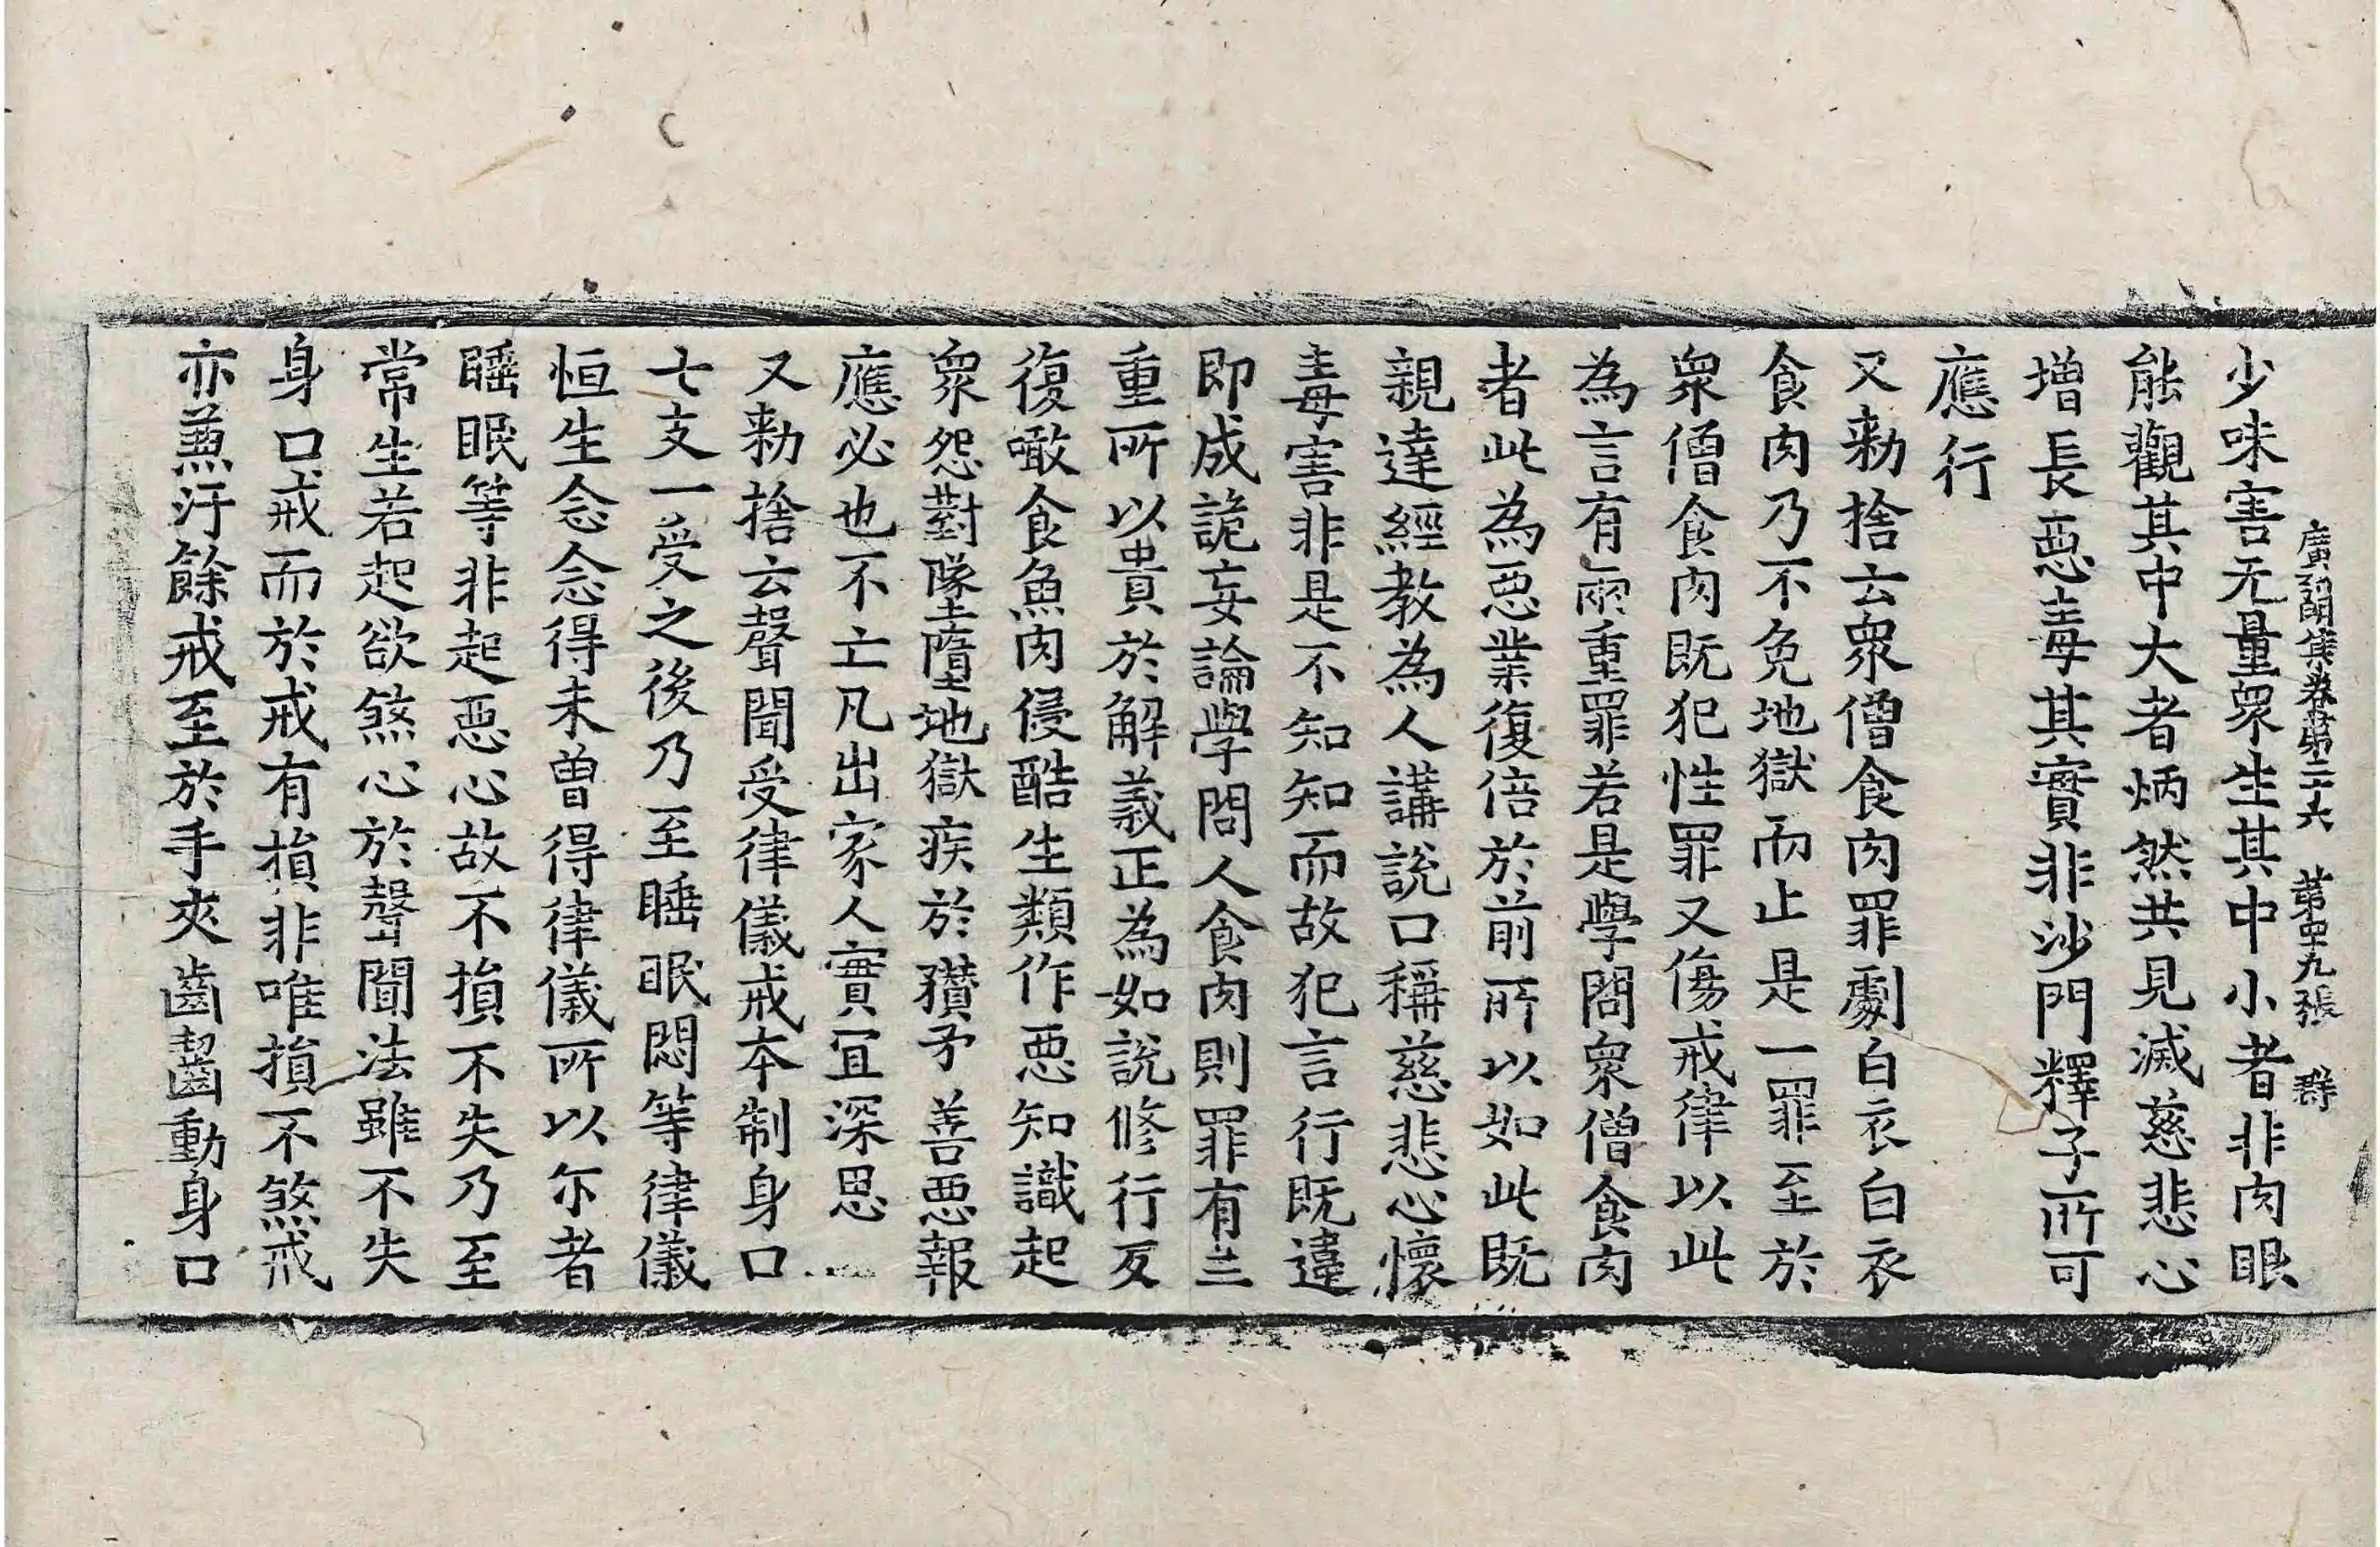 廣弘明集卷第二十六　第四十九張　群
少味害无量衆生其中小者非肉眼
能觀其中大者炳然共見滅慈悲心
增長惡毒其實非沙門釋子所可
應行
又勑捨云衆僧食肉罪劇白衣白衣
食肉乃不免地獄而止是一罪至於
衆僧食肉既犯性罪又傷戒律以此
為言有兩重罪若是學問衆僧食肉
者此為惡業復倍於前所以如此既
親達經教為人講說口稱慈悲心懷
毒害非是不知知而故犯言行既違
即成詭妄論學問人食肉則罪有三
重所以貴於解義正為如說修行反
復噉食魚肉侵酷生類作惡知識起
衆怨對墜墮地獄疾於㰊矛善惡報
應必也不亡凡出家人實宜深思
又勑捨云聲聞受律儀戒本制身口
七支一受之後乃至睡眠悶等律儀
恒生念念得未曾得律儀所以尓者
睡眠等非起惡心故不損不失乃至
常生若起欲煞心於聲聞法雖不失
身口戒而於戒有損非唯損不煞戒
亦兼汙餘戒至於手夾齒齧動身口